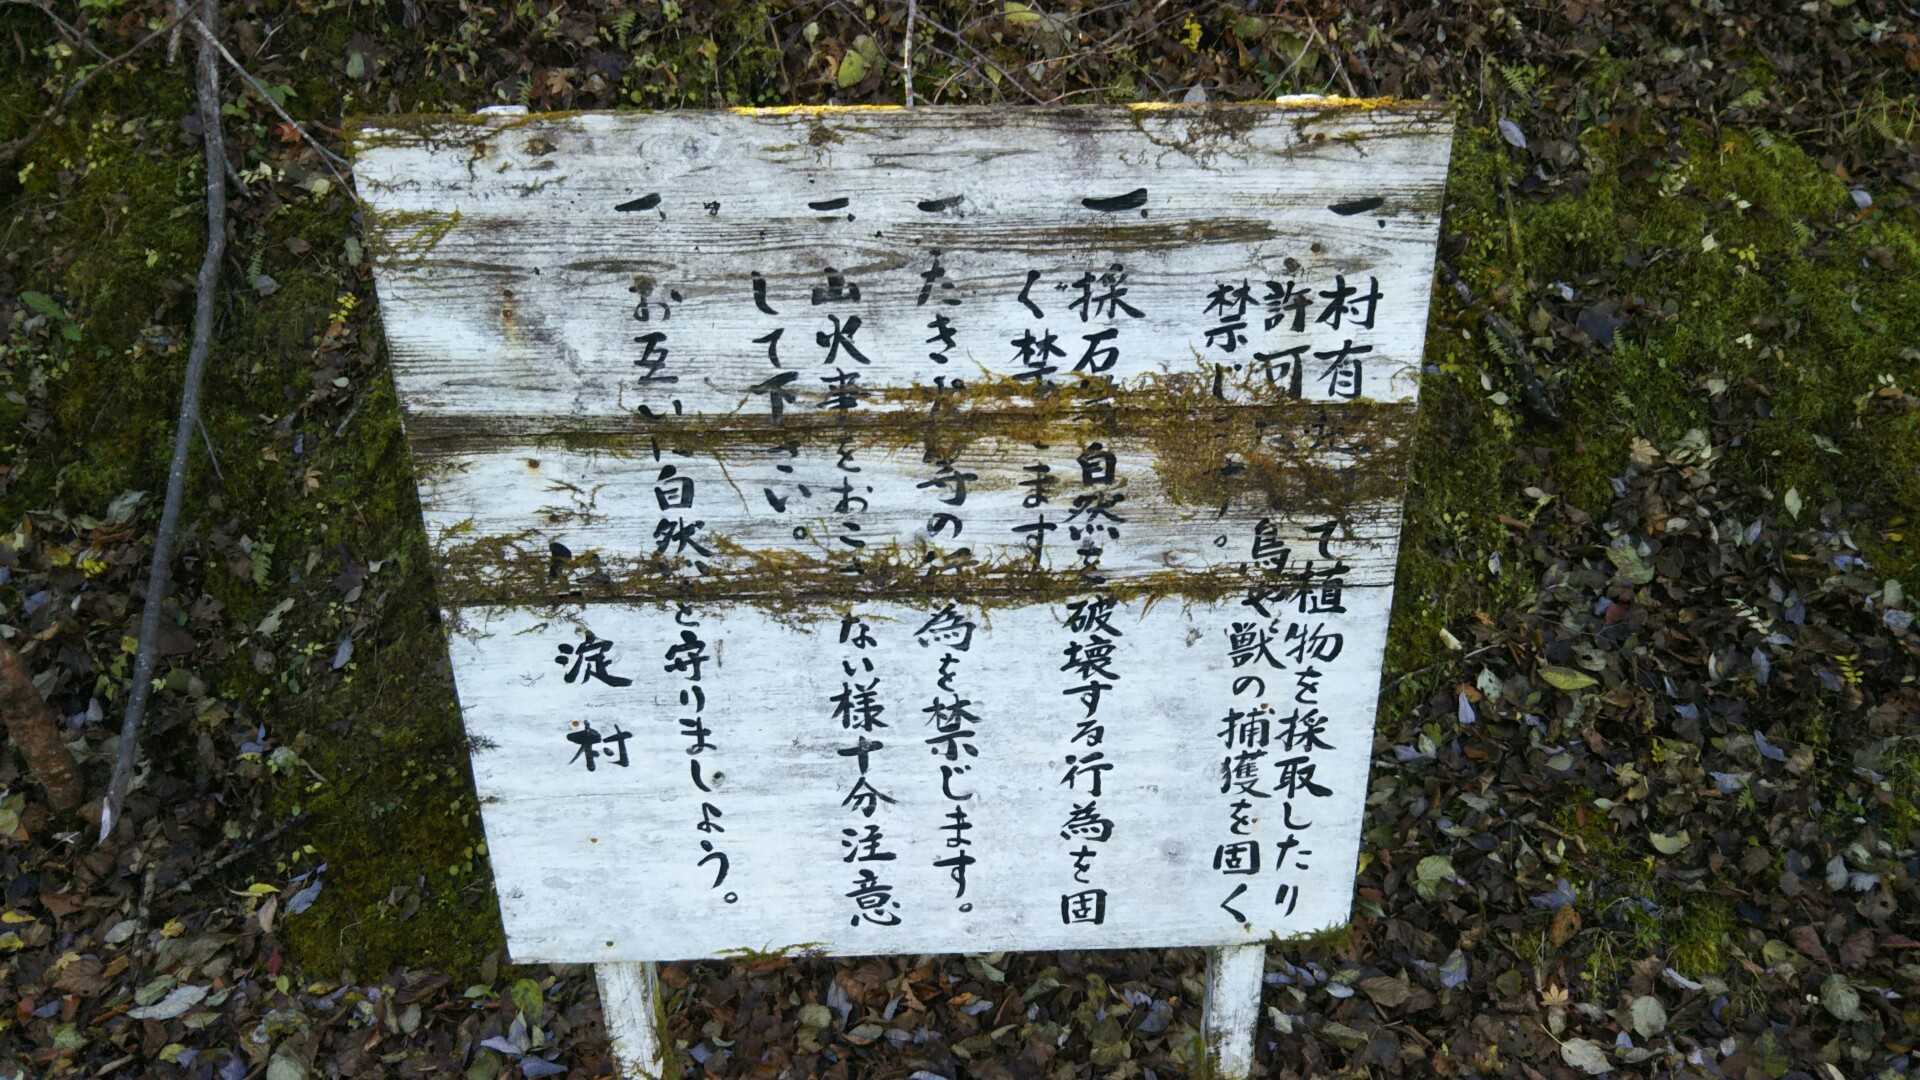 一、村有 て植物を採取したり
許可 鳥や獣の捕獲を固く
禁じ 。
一、採石 自然を破壊する行為を固
く禁 ます
一、たき 等の行為を禁じます。
一、山火事をおこさない様十分注意
して下さい。
一、お互いに自然を守りましょう。
淀村